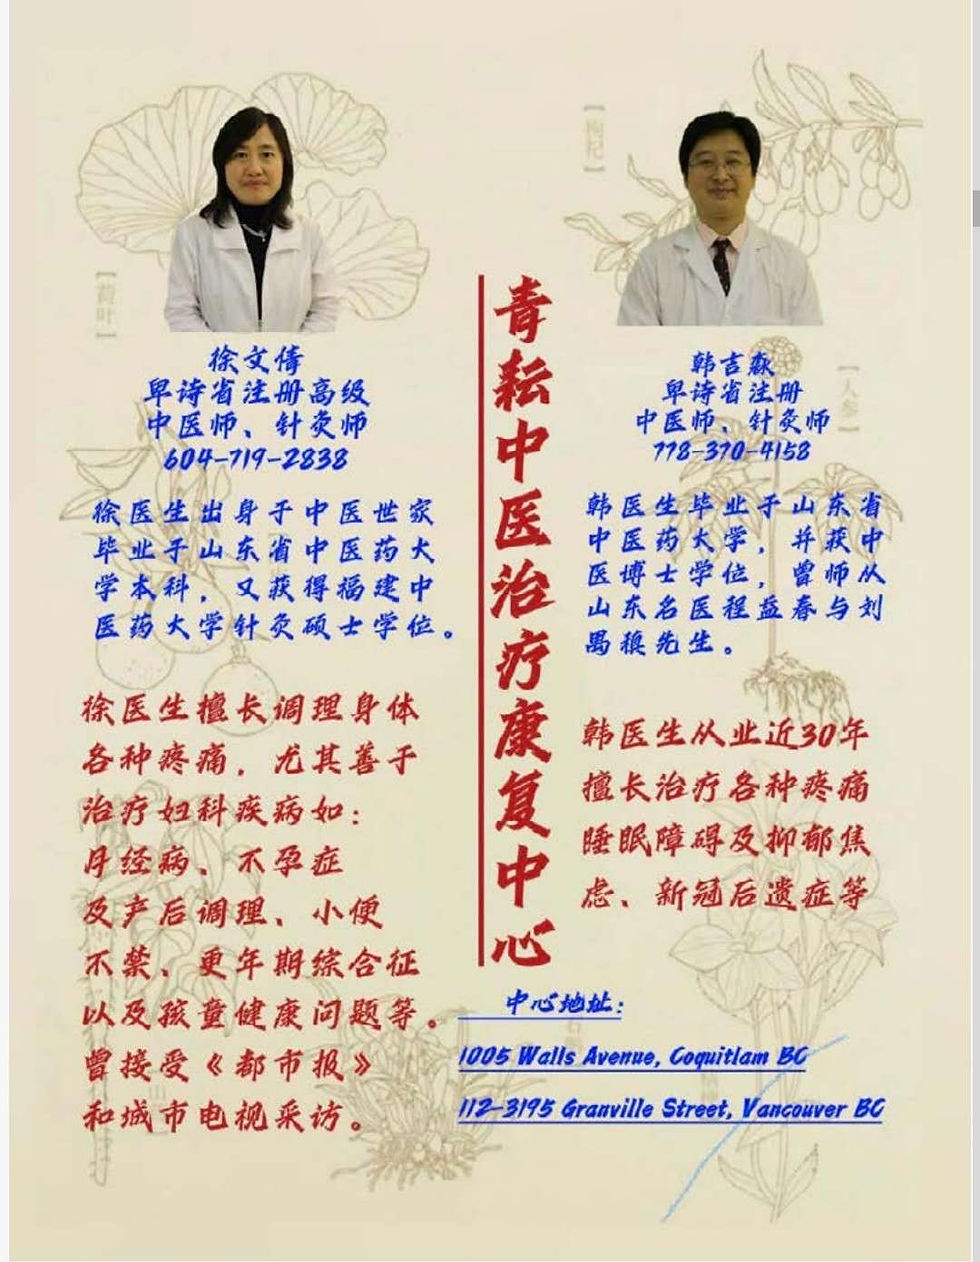 青耘中医治疗康复中心
徐文倩
卑诗省注册高级
中医师、针灸师
604-719-2838
徐医生出身于中医世家
毕业于山东省中医药大
学本科，又获得福建中
医药大学针灸硕士学位。
徐医生擅长调理身体
各种疼痛，尤其善于
治疗妇科疾病如：
月经病、不孕症
及产后调理、小便
不禁、更年期综合征
以及孩童健康问题等。
曾接受《都市报》
和城市电视采访。
韩吉淼
卑诗省注册
中医师、针灸师
778-370-4158
韩医生毕业于山东省
中医药大学，并获中
医博士学位，曾师从
山东名医程益春与刘
先生。
韩医生从业近30年
擅长治疗各种疼痛
睡眠障碍及抑郁焦
虑、新冠后遗症等
中心地址：
1005 Walls Avenue, Coquitlam BC
112-3195 Granville Street, Vancouver BC
【荷叶】
【枸杞】
【人参】